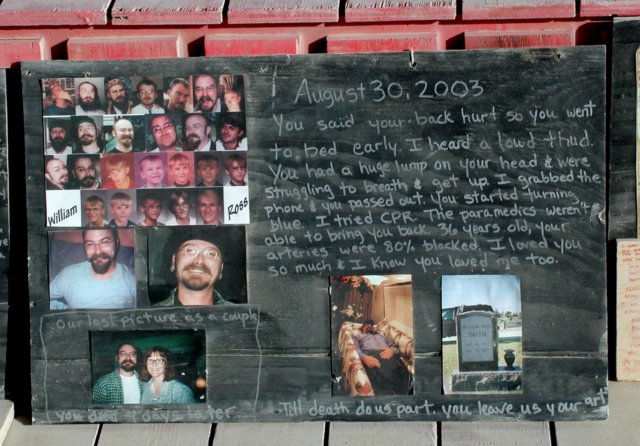 August 30, 2003
You said your back hurt so you went
to bed early. I heard a loud thud.
You had a huge lump on your head & were
struggling to breath & get up. I grabbed the
phone & you passed out. You started turning
blue. I tried CPR. The paramedics weren't
able to bring you back. 36 years old, your
arteries were 80% blocked. I loved you
so much & I know you loved me too.
William
Ross
Our last picture as a couple
you died 4 days later
SMITH
Till death do us part. you leave us your art